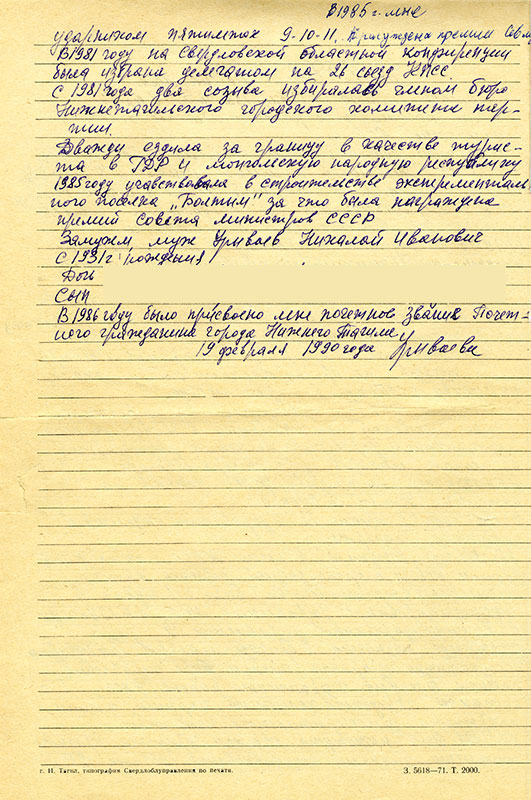 В 1985 г. мне
ударником пятилеток 9-10-11. Присуждена премия Сов м
В 1981 году на Свердловской областной конференции
была избрана делегатом на 26 съезд КПСС.
С 1981 года два созыва избиралась членом бюро
Нижнетагильского городского комитета пар-
тии.
Дважды ездила за границу в качестве турис-
та в ГДР и монгольскую народную республику
1985 году учавствовала в строительстве экспрементальн
ного поселка „Волтым" за что была награждена
премий совета министров СССР
Замужем, муж Урываев Николай Иванович
с 1931 г рождения
Дочь
Сын
В 1986 году было присвоено мне почетное звание Почет-
ного гражданина города Нижнего Тагила
19 февраля 1990 года Урываева
г. Н. Тагил, типография Свердлоблуправления по печати.
З. 5618—71. Т. 2000.